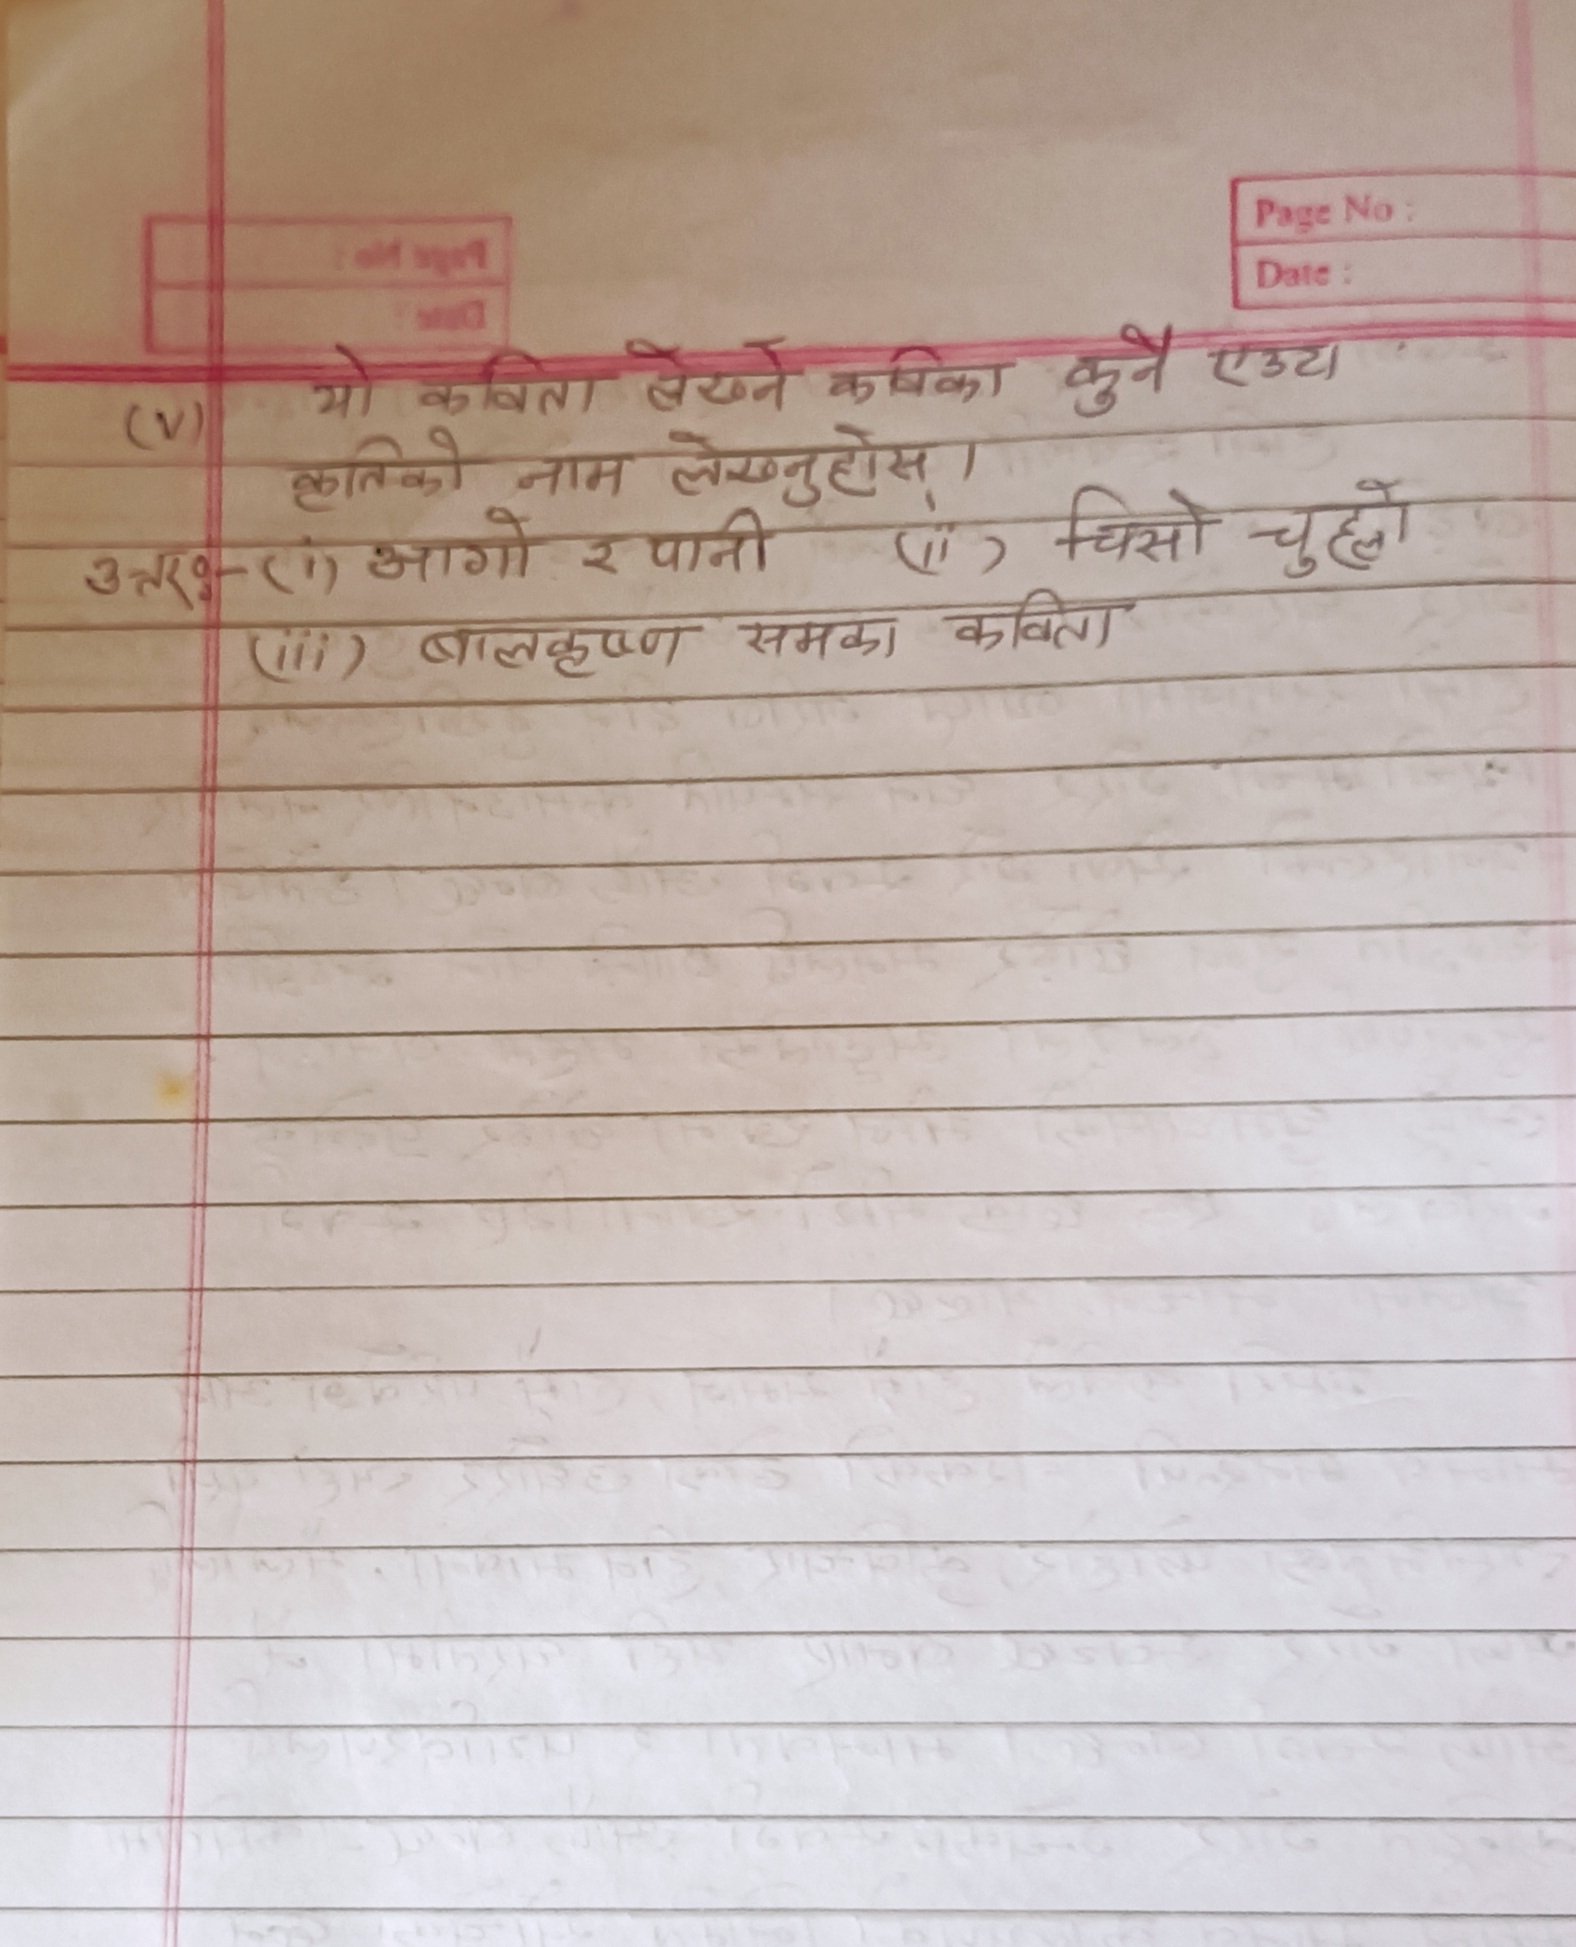 Page No :
Date :
(v) यो कविता लेख्ने कविका कुनै एउटा
कृतिको नाम लेख्नुहोस् ।
उत्तरः- (i) आगो र पानी (ii) चिसो चुह्लो
(iii) बालकृष्ण समका कविता